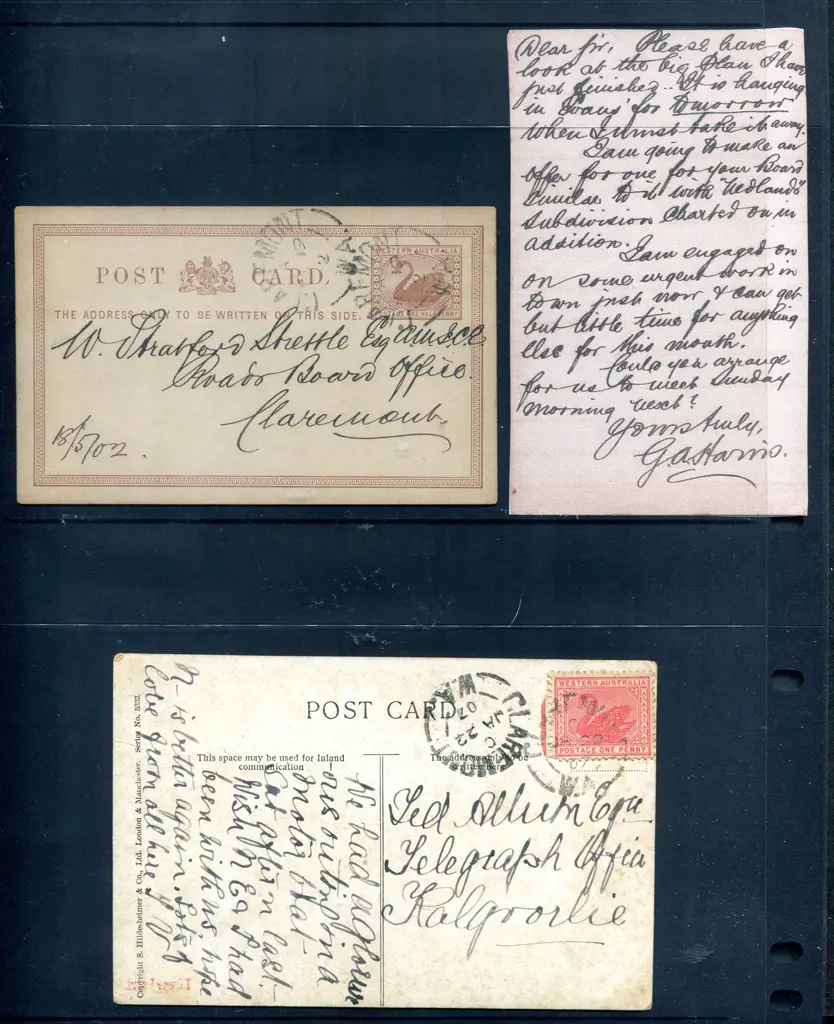 POST CARD.
WESTERN AUSTRALIA
THE ADDRESS ONLY TO BE WRITTEN ON THIS SIDE.
CLAREMONT
W.A
W. Stratford Strettle Esq AMSCE
Roads Board Office.
Claremont.
18/5/02.
Dear Sir, Please have a
look at the big Plan I have
just finished. It is hanging
in Evans' for Tomorrow
when I must take it away.
I am going to make an
offer for one for your Board
similar to it with "Nedlands"
Subdivision Charted on in
addition.
I am engaged on
on some urgent work in
Town just now & can get
but little time for anything
else for this month.
Could you arrange
for us to meet Sunday
morning next?
Yours truly,
G.A. Harris.
POST CARD.
This space may be used for Inland
communication
The address only to be
CLAREMONT
W.A.
JA 22
07
WESTERN AUSTRALIA
POSTAGE ONE PENNY
Ted Allum Esq
Telegraph Office
Kalgoorlie
We had a glorious
outing in a
Motor Boat
Sat aftern last
Wish M E & I had
been with us, hope
N- is better again. Lots of
love from all here
Copyright S. Hildesheimer & Co., Ltd. London & Manchester. Series No. 5232.